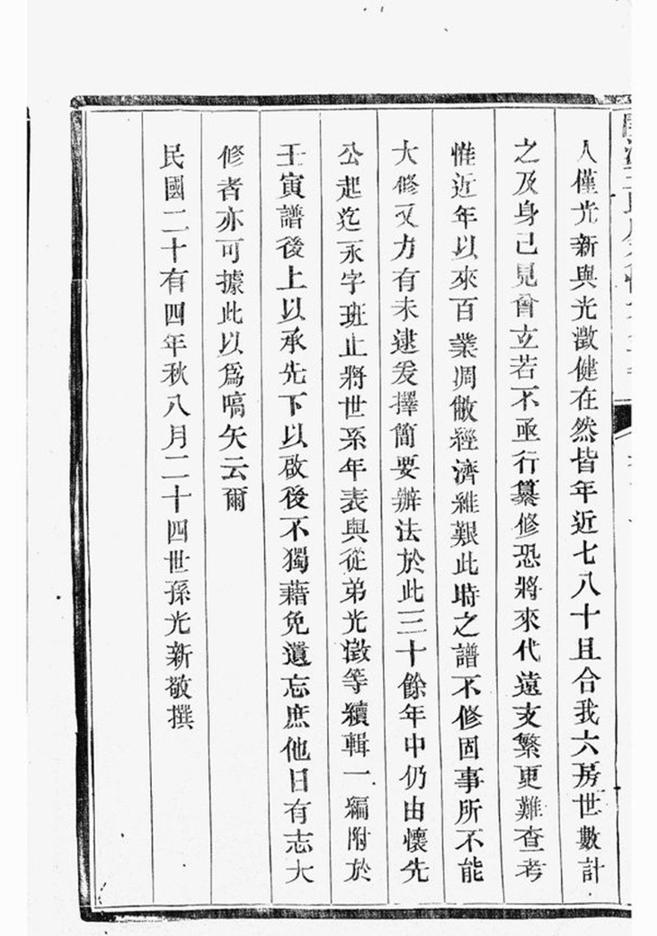 人僅光新與光瀓健在然皆年近七八十且合我六房世數計
之及身已見曾立若不亟行纂修恐將來代遠支繁更難查考
惟近年以來百業凋敝經濟維艱此時之譜不修固事所不能
大修又力有未逮爰擇簡要辦法於此三十餘年中仍由懷先
公起迄永字班止將世系年表與從弟光瀓等續輯一編附於
壬寅譜後上以承先下以啟後不獨藉免遺忘庶他日有志大
修者亦可據此以爲嚆矢云爾
民國二十有四年秋八月二十四世孫光新敬撰